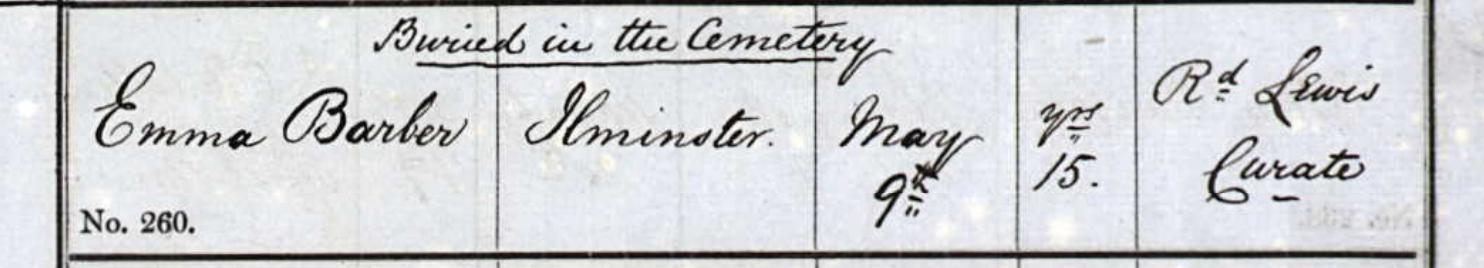 Buried in the Cemetery
Emma Barber
Ilminster.
May
9th
yrs
15.
Rd Lewis
Curate
No. 260.